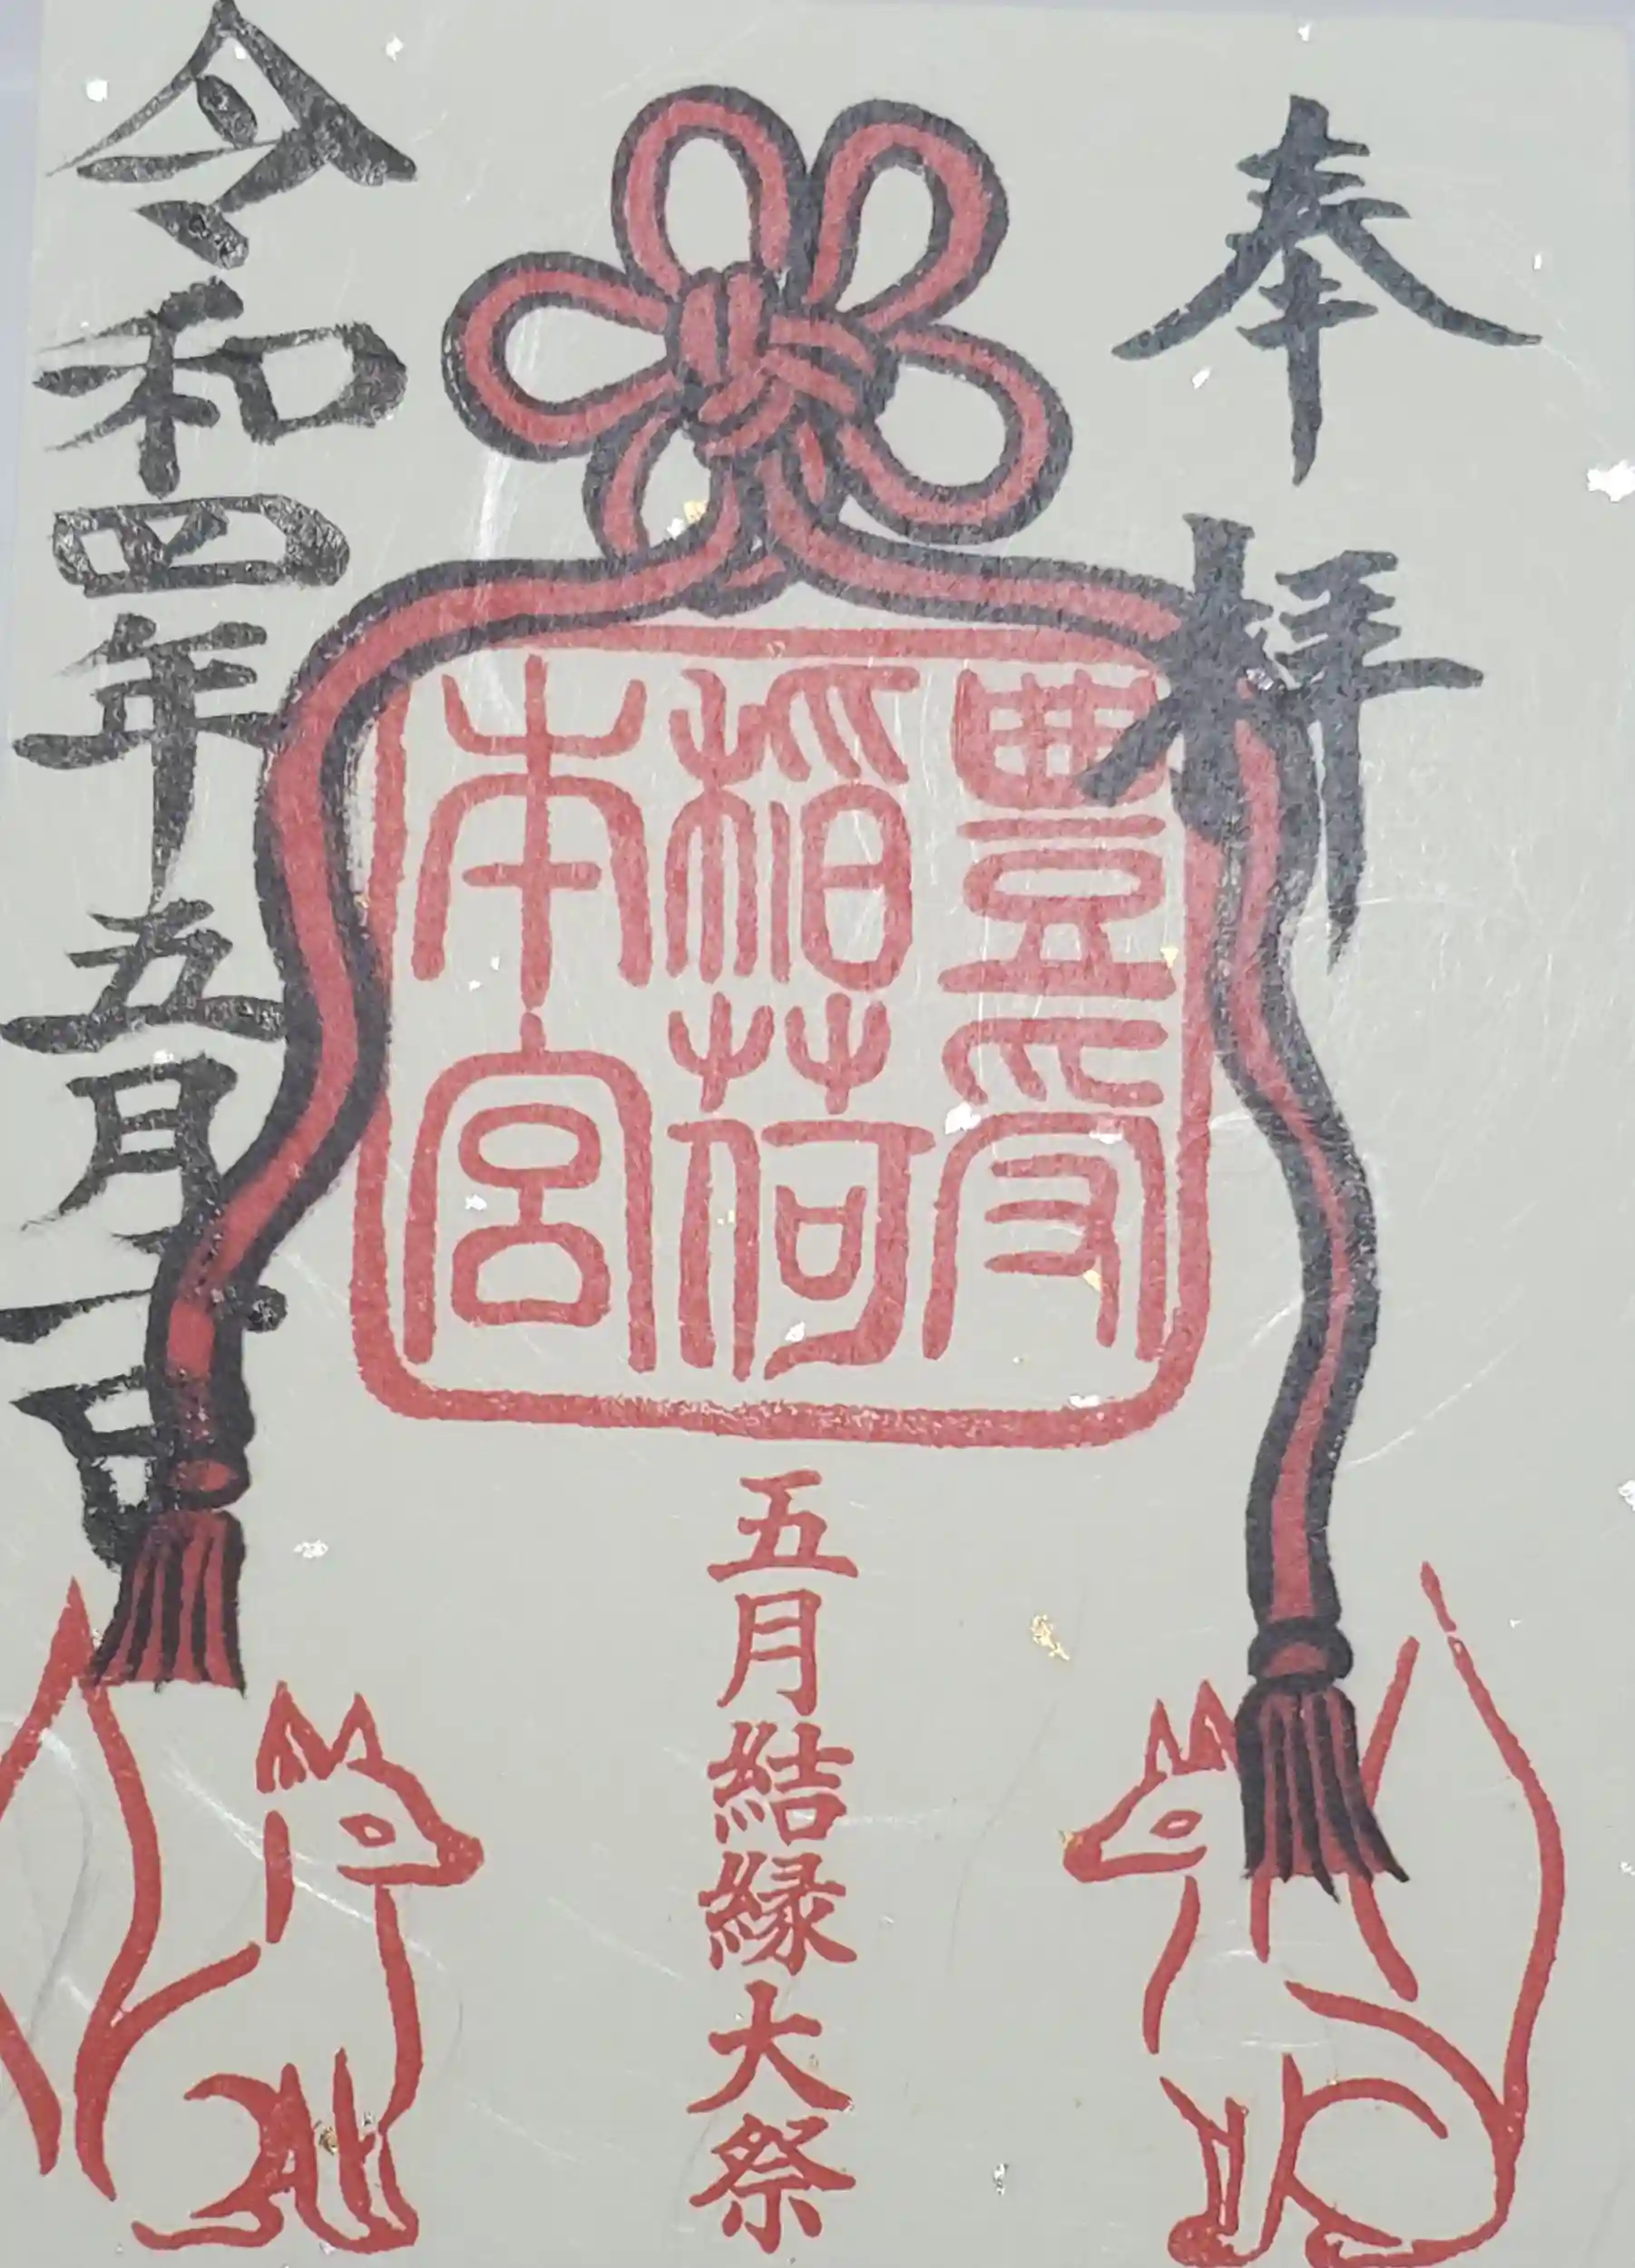 奉拝
豊受
稲荷
本宮
五月結縁大祭
令和四年五月 日